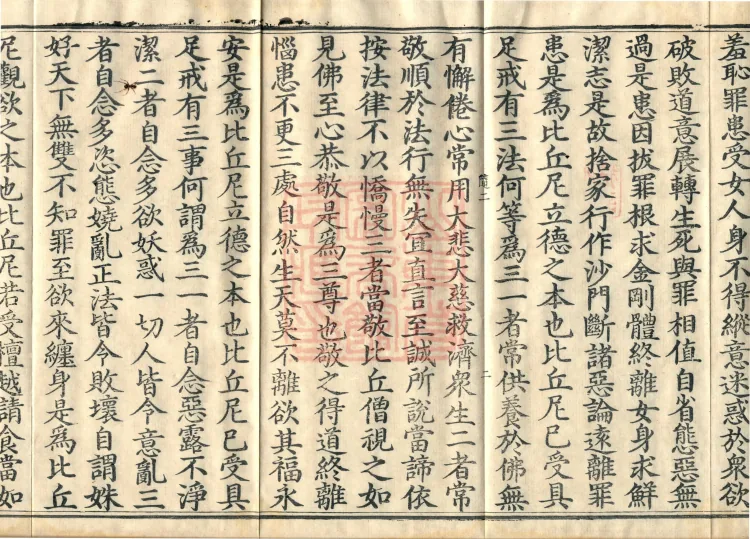 羞恥罪患受女人身不得縱意迷惑於衆欲
破敗道意展轉生死與罪相值自省態惡無
過是患因拔罪根求金剛體終離女身求鮮
潔志是故捨家行作沙門斷諸惡論遠離罪
患是爲比丘尼立德之本也比丘尼已受具
足戒有三法何等爲三一者常供養於佛無
有懈倦心常用大悲大慈救濟衆生二者常
敬順於法行無失冝直言至誠所說當諦依
按法律不以憍慢三者當敬比丘僧視之如
見佛至心恭敬是爲三尊也敬之得道終離
惱患不更三處自然生天莫不離欲其福永
安是爲比丘尼立德之本也比丘尼已受具
足戒有三事何謂爲三一者自念惡露不淨
潔二者自念多欲妖惑一切人皆令意亂三
者自念多恣態嬈亂正法皆令敗壞自謂姝
好天下無雙不知罪至欲來纏身是爲比丘
尼觀欲之本也比丘尼若受檀越請食當如